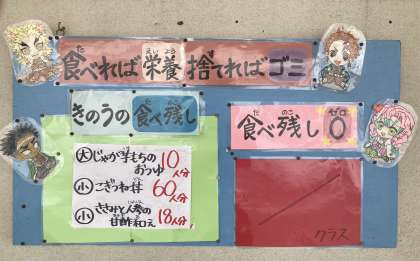 食べれば栄養捨てればゴミ
きのうの食べ残し
食べ残し0
大じゃが芋もちのおつゆ 10人分
小こぎつね丼 60人分
小ささみと人参の甘酢和え 18人分
クラス